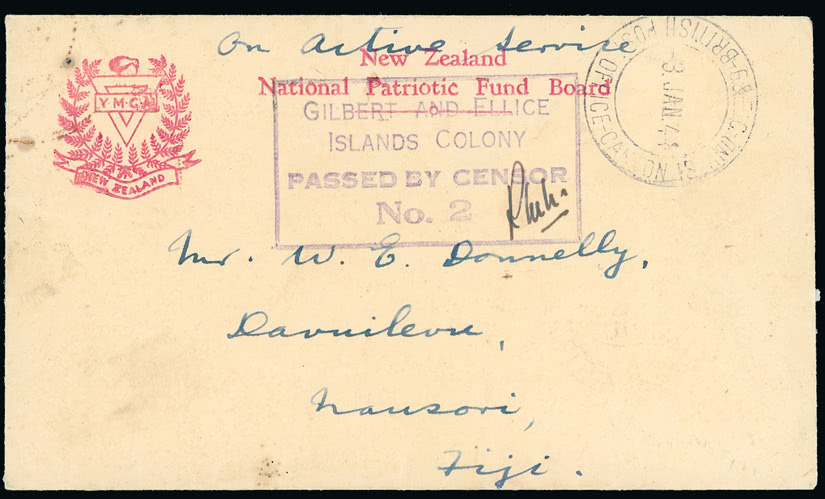 On Active Service
New Zealand
National Patriotic Fund Board
Y.M.C.A
NEW ZEALAND
GILBERT AND ELLICE
ISLANDS COLONY
PASSED BY CENSOR
No. 2
BRITISH POST OFFICE
3 JAN 41
Mr. W. E. Donnelly,
Davuilevu,
Nausori,
Fiji.